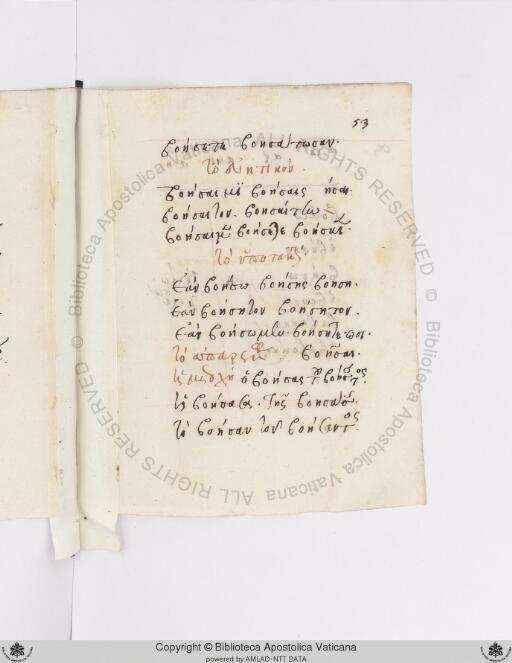 53
βοήσατε βοησάτωσαν.
Τὸ εὐκτικόν.
βοήσαιμι βοήσαις ήσαι.
βοήσαιτον. βοησαίτην
βοήσαιμεν βοήσαιτε βοήσαιεν
Τὸ ὑποτακτικόν
Ἐὰν βοήσω βοήσης βοήση.
Ἐὰν βοήσητον βοήσητον.
Ἐὰν βοήσωμεν. βοήσητε ωσι.
Τὸ ἀπαρέμφατον. βοῆσαι.
Ἡ μετοχή ὁ βοήσας τοῦ βοήσαντος.
Ἡ βοήσασα. τῆς βοησάσης.
Τὸ βοῆσαν τοῦ βοήσαντος.
Copyright © Biblioteca Apostolica Vaticana
powered by AMLAD-NTT DATA